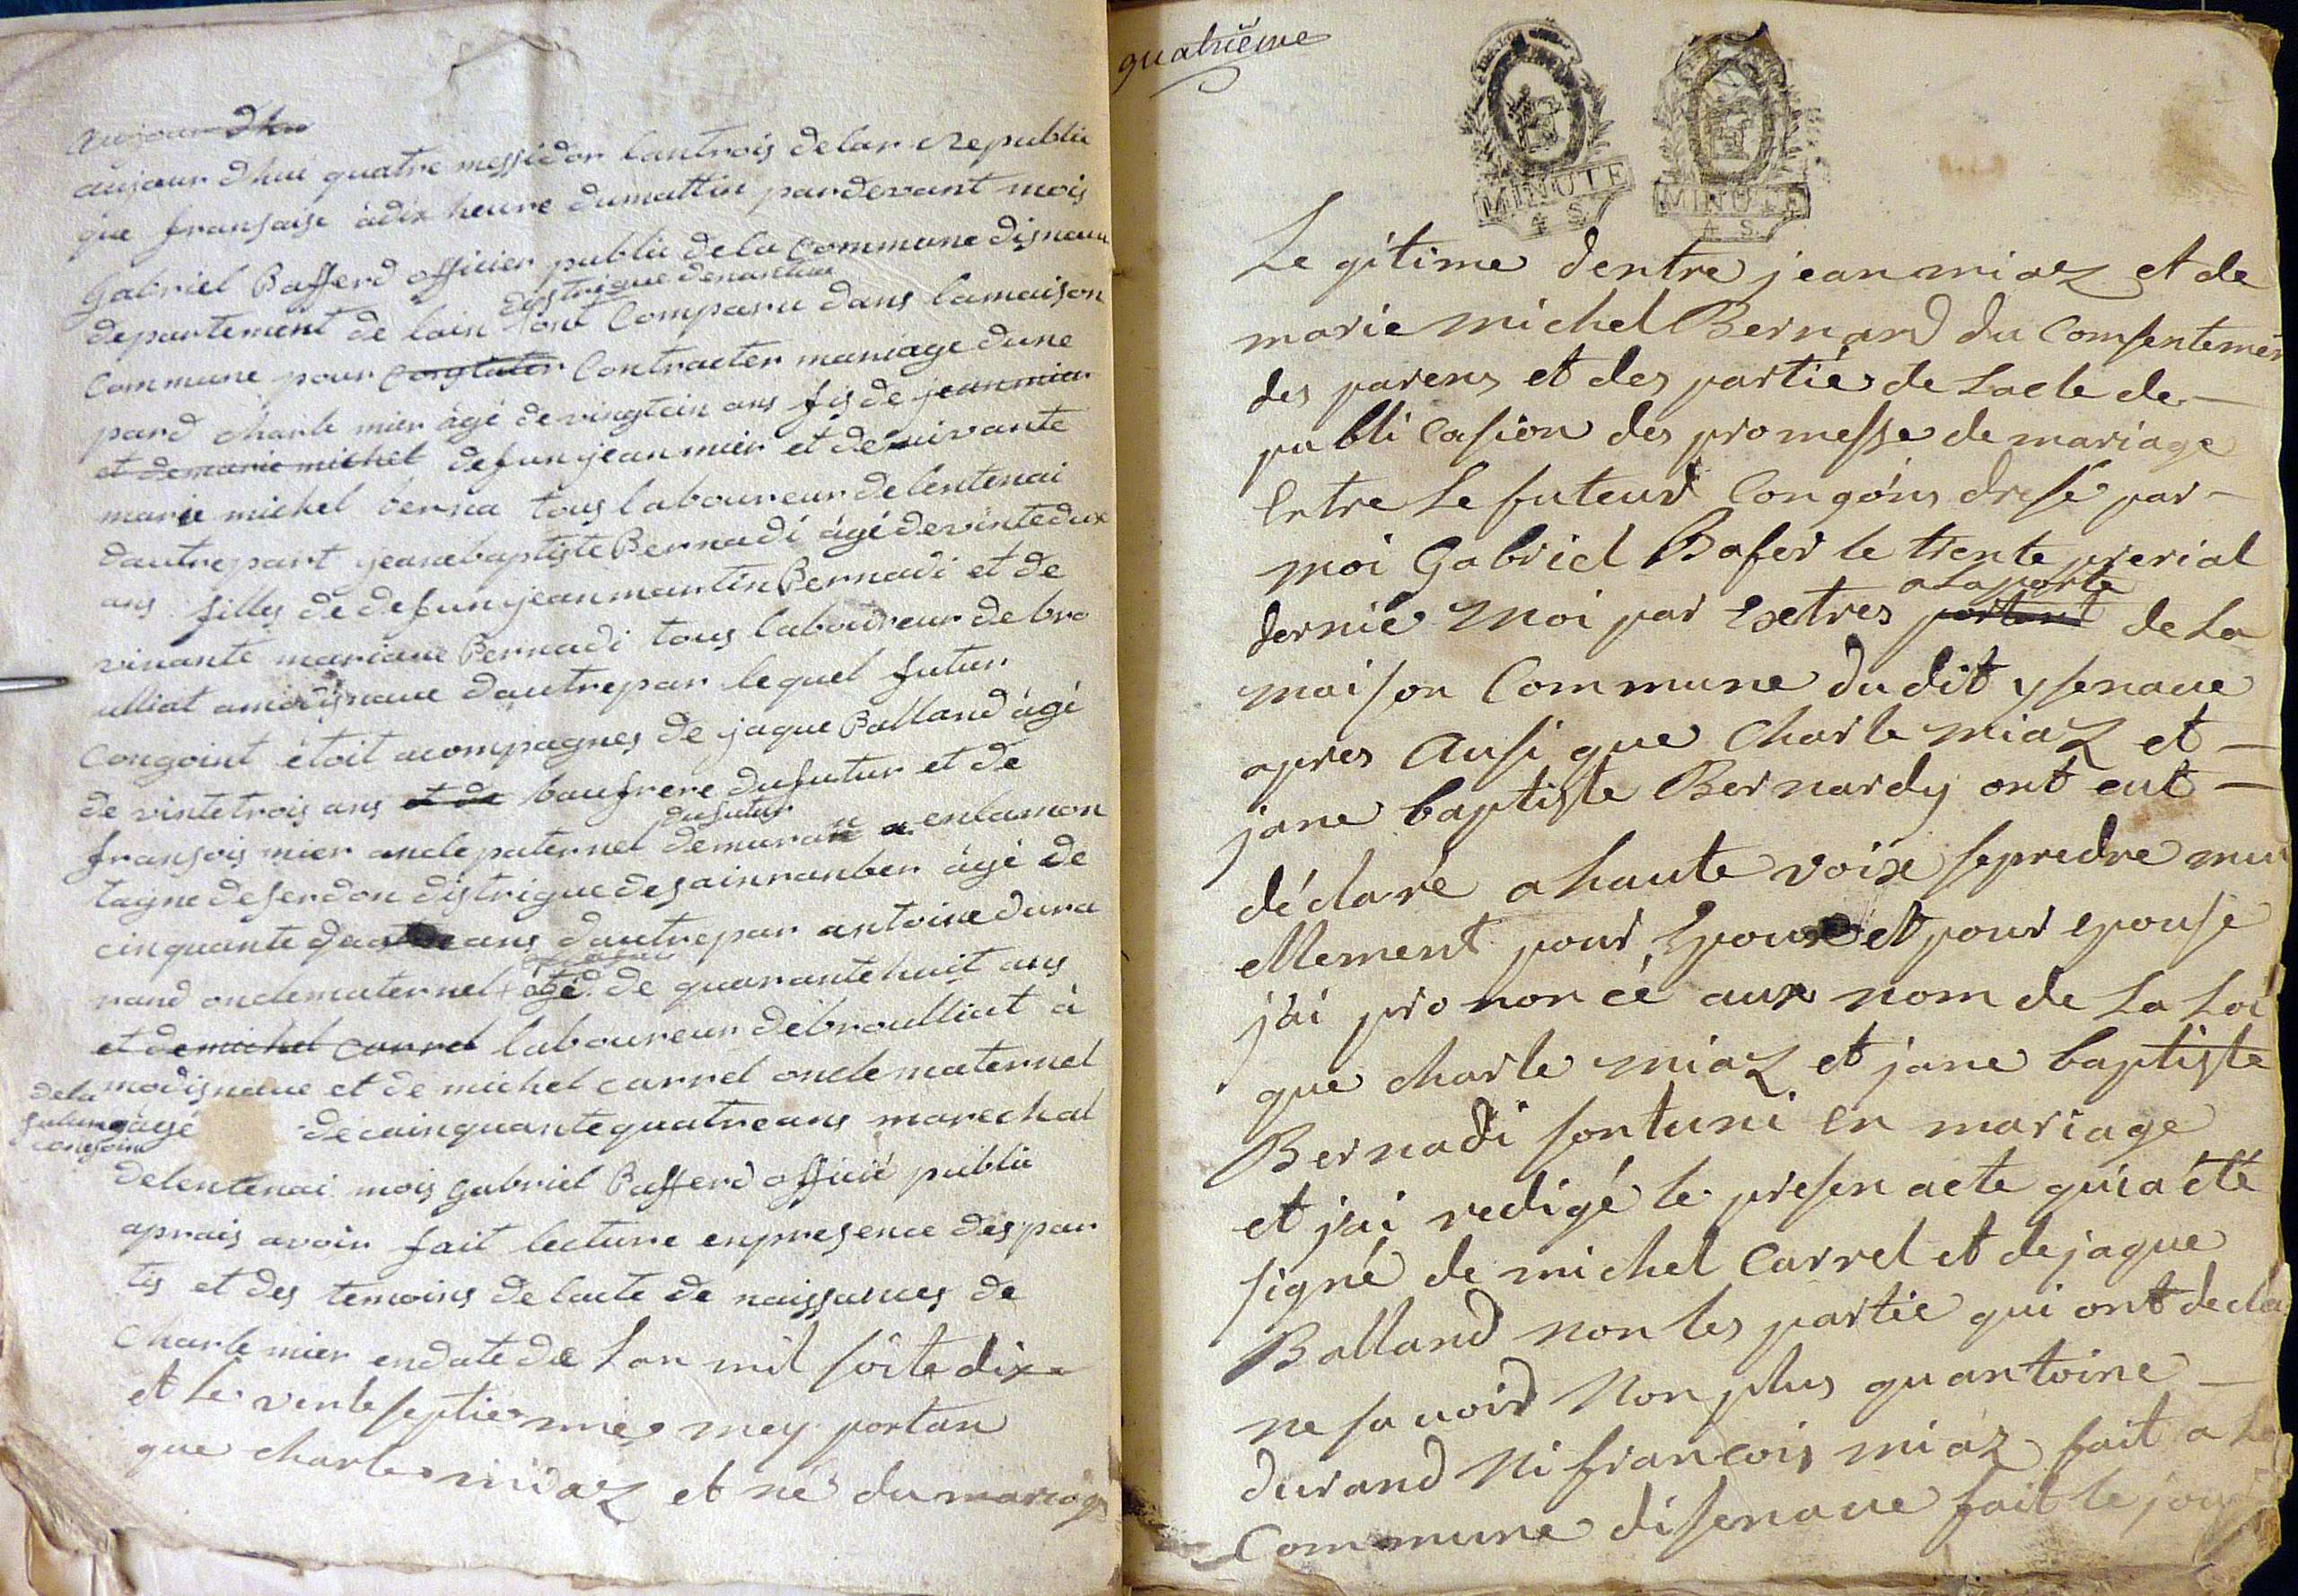 aujourdhu
aujour dhui quatre messidor lantrois delar republi
que fransaise àdix heure dumattin pardevant mois
Gabriel Bafferd officier public dela commune disnaue
distrique denantua
departement de lain sont Comparu dans lamaison
Commune pour Contracter mariage dune
pard charle mier àgé devingtein ans fis de jeanmier
et demarie michel defunjeanmier et de vivante
marie michel berna tous laboureur delentenai
dautrepart jeanebaptiste Bernadi àgé devintedux
ans filles de defunjeanmartin Bernadi et de
vivante mariane Bernadi tous laboureur de bro
ulliat amodisnaue dautrepar lequel futur
Congoint étoit acompagnes de jaque Balland àgé
de vintetrois ans et de baufrere dufutur et de
dufutur
fransois mier oncle paternel demuran a enlamon
tagne deserdon distrique desainranber àgé de
cinquante ans dautrepar antoine dura
rand oncle maternel agé de quarantehuit ans
et de michel carrel laboureur debroulliat à
modisnaue et de michel carrel oncle maternel
dela
futur
congoint
agé decainquantequatreans marechal
delentenai mois Gabriel Bafferd officié public
aprais avoir fait lecture enpresence des par
tis et des temoins de lacte de naissances de
Charle mier endate de Lan mil soite dix
et le vente septiesme mey portan
que charle miaz et né du mariage
quatrième
MINUTE
4 S
MINUTE
4 S
Legitime dentre jean miaz et de
marie michel Bernard du Comsentemen
des parens et des partiés de Lacte de
publicasion des promesse de mariage
Entre Le futeur Congóins dresé par
moi Gabriel Bafer le trente prerial
a la porte
dernie Moi par Exetres portent de La
maison Commune dudit ysenaue
apres Ausi que Charle miaz et
jane baptiste Bernardy ont eut
déclaré a haute voix sepredre mu
ellement pour Epouse et pour epouse
j'ai prononcé aux nom de La Loi
que charle miaz et jane baptiste
Bernadi sontuni en mariage
et j'ai redigé le presen acte qui a été
signé de michel Carrel et de jaque
Balland non les partie qui ont decla
ne savoir Non plus quantoine
durand Ni francois miaz fait a La
Commune disenaue fait le jour